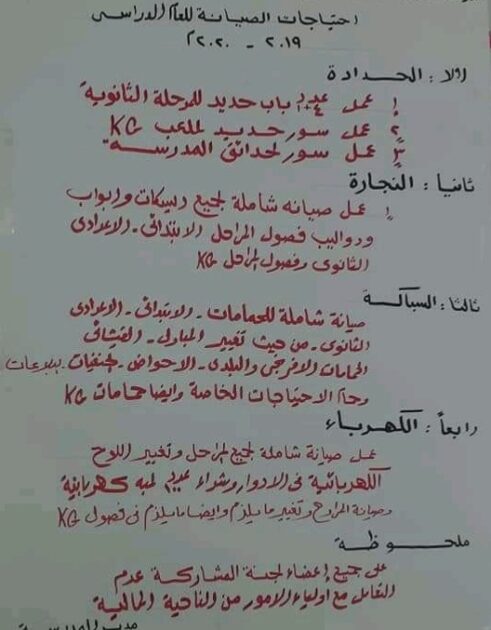 احتياجات الصيانة للعام الدراسى
٢٠١٩ - ٢٠٢٠م
اولا : الحدادة
١ عمل عدد ٤ باب حديد للمرحلة الثانوية
٢ عمل سور حديد لملعب KG
٣ عمل سور لحدائق المدرسة
ثانيا : النجارة
١ عمل صيانه شاملة لجميع ديسكات وابواب
ودواليب فصول المراحل الابتدائى - الاعدادى
الثانوى وفصول المراحل KG
ثالثا : السباكة
صيانة شاملة للحمامات - الابتدائى - الاعدادى
الثانوى - من حيث تغيير المباول - القيشانى
الحمامات الافرنجى والبلدى - الاحواض - الحنفيات - بلاعات
وحمام الاحتياجات الخاصة وايضا حمامات KG
رابعاً : الكهرباء
عمل صيانة شاملة لجميع المراحل وتغيير اللوح
الكهربائية فى الادوار وشراء عدد لمبه كهربائية
وصيانة المراوح وتغيير ما يلزم وايضا ما يلزم فى فصول KG
ملحوظة
على جميع اعضاء لجنة المشاركة عدم
التعامل مع اولياء الامور من الناحية المالية